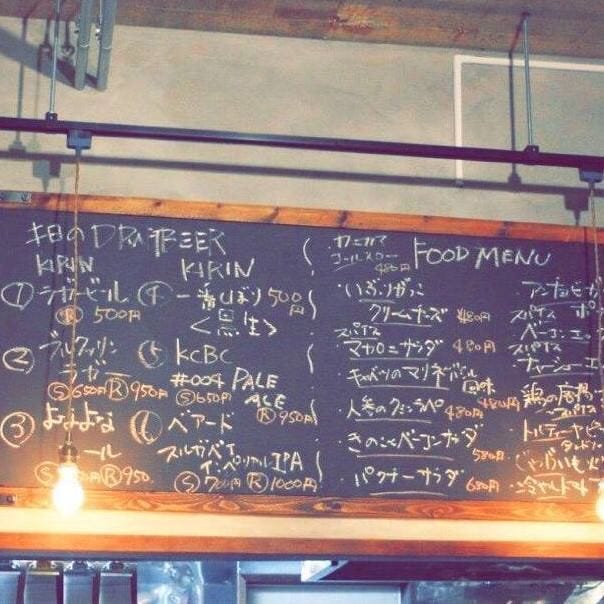 本日の DRAFT BEER
KIRIN
① ラガービール
Ⓡ 500円
② ブルックリン
ラガー
Ⓢ650円 Ⓡ950
③ よなよな
ール
Ⓢ 円 Ⓡ950
KIRIN
④ 一番しぼり 500円
<黒生>
⑤ KCBC
#004 PALE ALE
Ⓢ650円 Ⓡ950円
⑥ ベアード
スルガベイ
インペリアルIPA
Ⓢ700円 Ⓡ1000円
FOOD MENU
コールスロー 480円
・いぶりがっこ
クリームチーズ 480円
スパイス
マカロニサラダ 480円
・キャベツのマリネ 風味
480円
・人参のクミンラペ 480円
・きのことベーコンサラダ
580円
・パクチーサラダ 680円
アンチョビ
スパイス ポ
ベーコン
スパイス
チャーシュー
・鶏の唐揚
スパイス
・トルティーヤ
・じゃがいも
・冷やしトマト